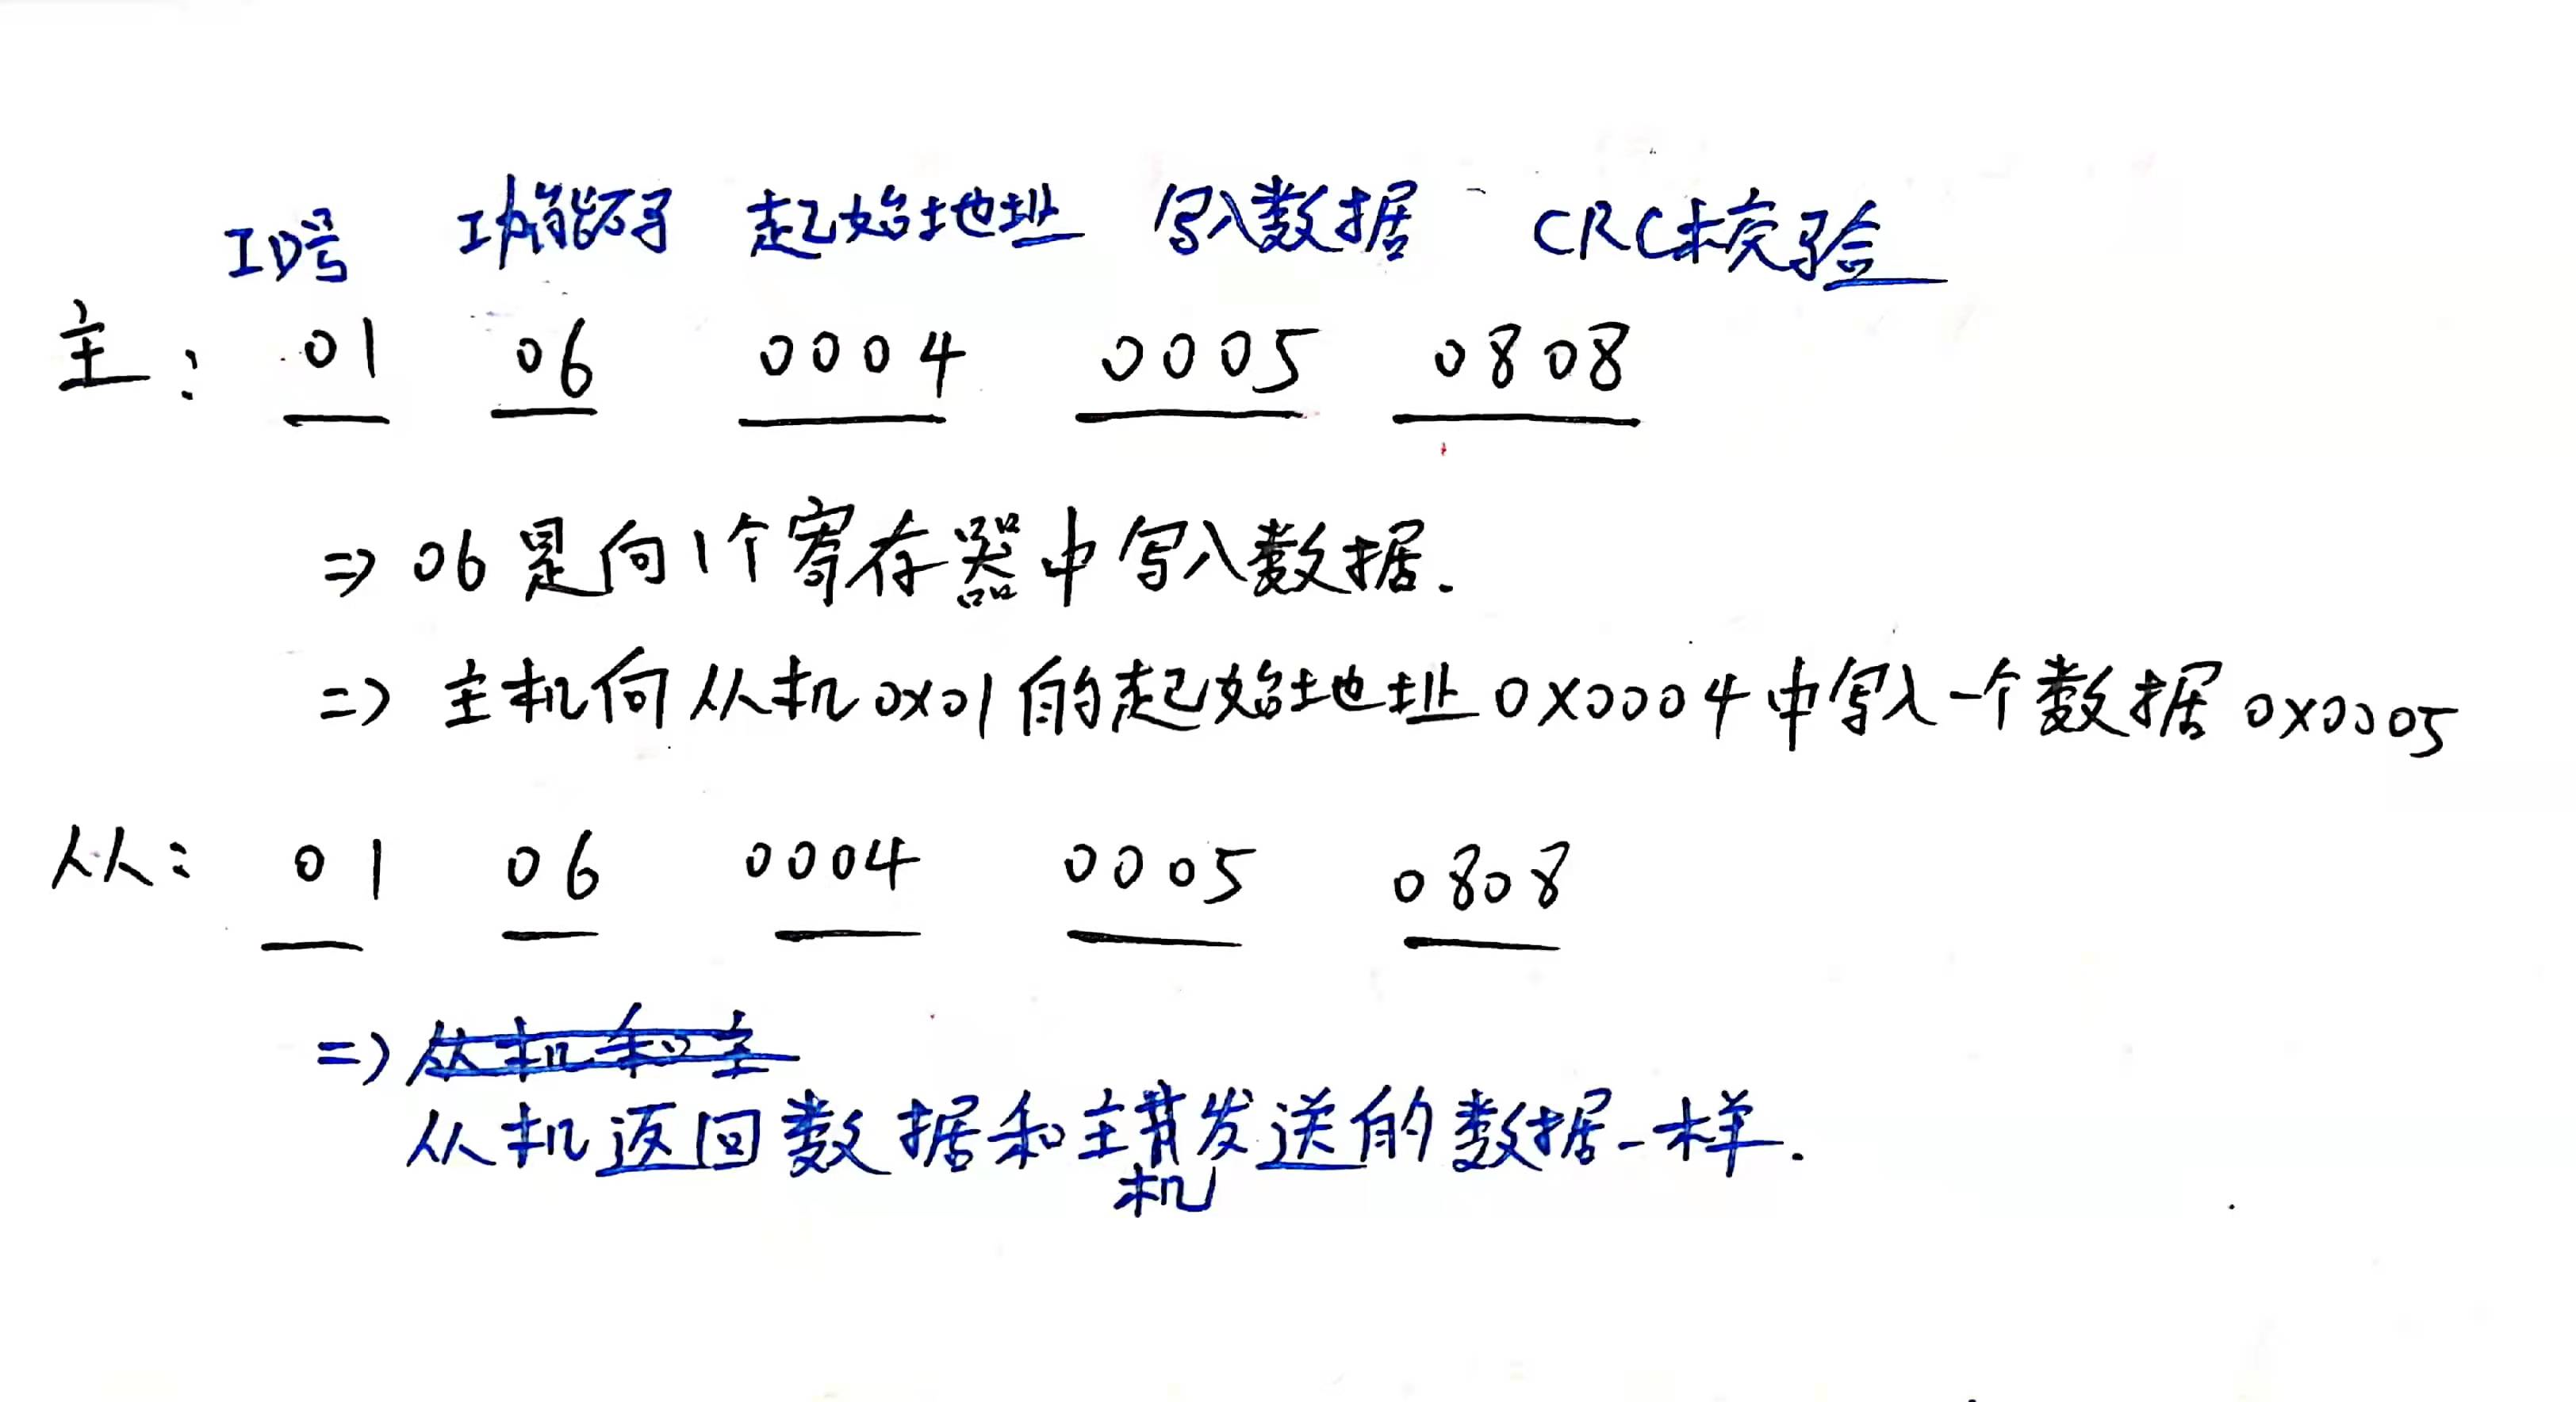 ID号 功能码 起始地址 写入数据 CRC校验
主: 01 06 0004 0005 0808
=> 06是向1个寄存器中写入数据.
=> 主机向从机0x01的起始地址0x0004中写入一个数据0x0005
从: 01 06 0004 0005 0808
=> 从机和主
从机返回数据和主机发送的数据一样.